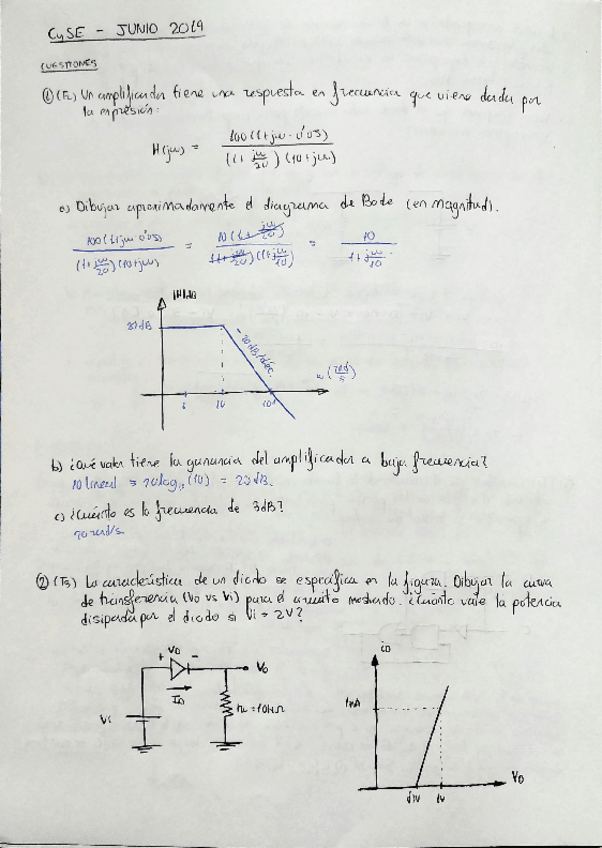 CySE - JUNIO 2019
CUESTIONES
① (F2) Un amplificador tiene una respuesta en frecuencia que viene dada por
la expresión:
H(jω) = 100(1+jω·0'05) / (1+jω/20)(10+jω)
a) Dibujar aproximadamente el diagrama de Bode (en magnitud).
100(1+jω·0'05) / (1+jω/20)(10+jω) = 10(1+jω/20) / (1+jω/20)(1+jω/10) = 10 / 1+jω/10
|H|dB
20dB
-20dB/déc.
ω (rad/s)
1 10 100
b) ¿Qué valor tiene la ganancia del amplificador a baja frecuencia?
10 lineal = 20log10(10) = 20dB.
c) ¿Cuánto es la frecuencia de 3dB?
10 rad/s
② (T3) La característica de un diodo se especifica en la figura. Dibujar la curva
de transferencia (Vo vs Vi) para el circuito mostrado. ¿Cuánto vale la potencia
disipada por el diodo si Vi = 2V?
+ VD -
Vo
ID
Vi
RL=10kΩ
iD
1mA
VD
1V